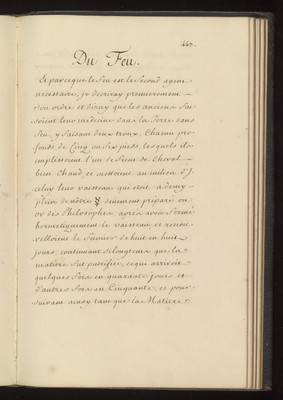 447.
Du Feu.
Et parceque le feu est le Second agent
necessaire, je décriray premierement
son ordre et diray que les anciens fai-
soient leur medecine dans la Terre sans
feu, y faisant deux troux, Chacun pro-
fonds de Cinq ou Six pieds, lesquels ils
emplissoient l'un de fient de Cheval
bien Chaud, et mettoient au milieu d'J-
celuy leur vaisseau qui étoit a demy
plein de nôtre ☿ deüement preparé ou
or des Philosophes, aprés avoir fermé
hermetiquement le vaisseau, et renou-
velloient le fumier de huit en huit
jours, continuant si longtems que la
matiere fut putrifiée, ce qui arrivoit
quelques fois en quarante jours et
d'autres fois en Cinquante, et pour-
suivant ainsy tant que la Matiere